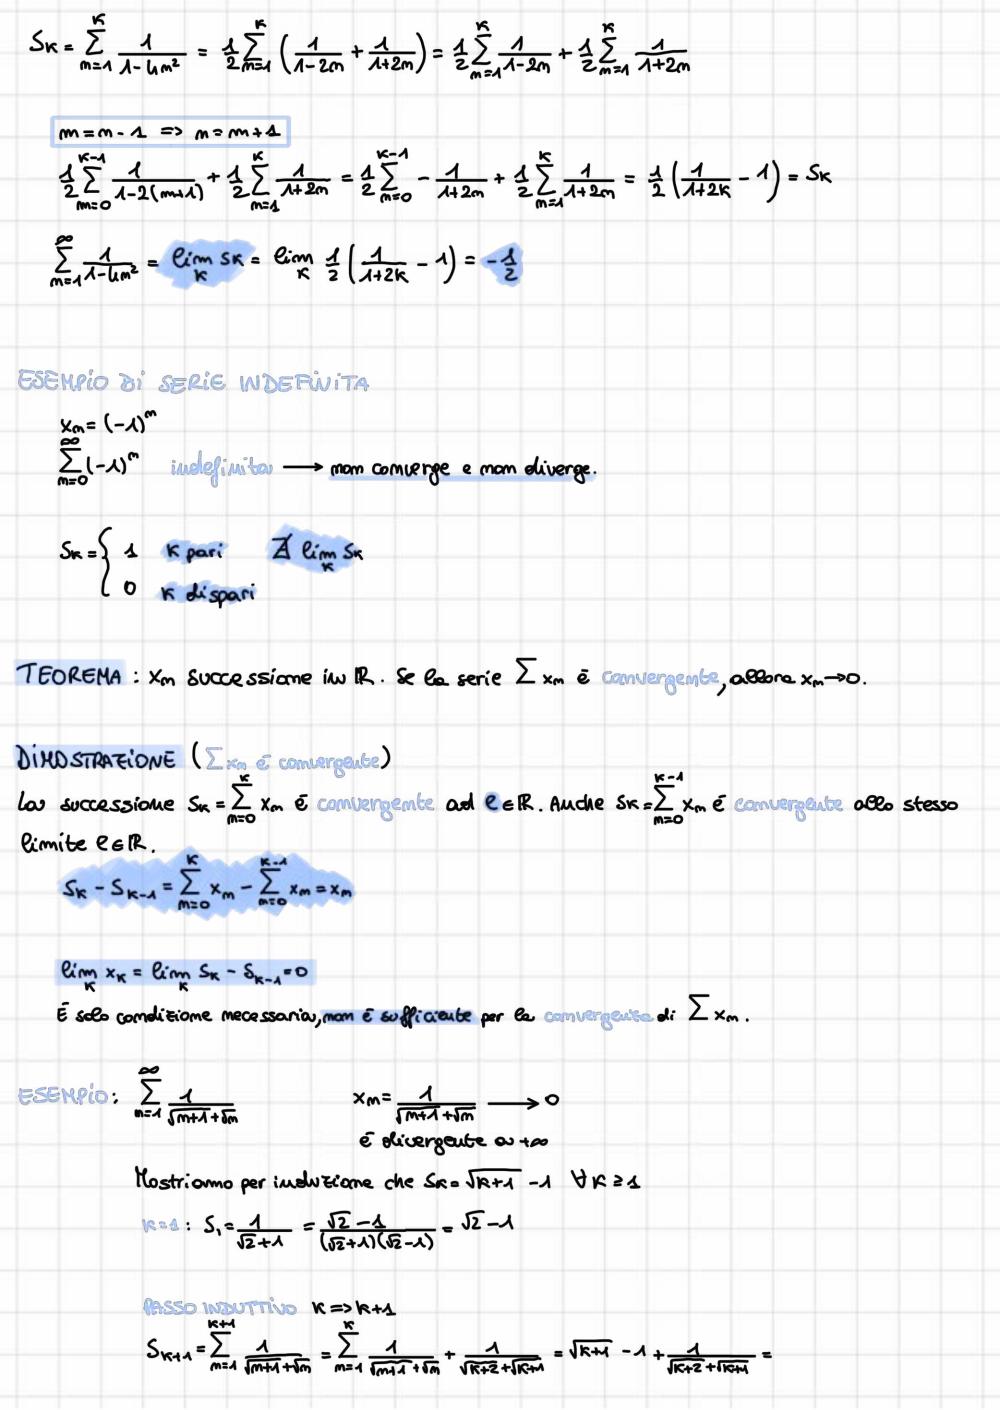 Sₖ = ∑_{n=1}^{k} 1/(1-4n²) = 1/2 ∑_{n=1}^{k} (1/(1-2n) + 1/(1+2n)) = 1/2 ∑_{n=1}^{k} 1/(1-2n) + 1/2 ∑_{n=1}^{k} 1/(1+2n)
m = n - 1 => n = m + 1
1/2 ∑_{m=0}^{k-1} 1/(1-2(m+1)) + 1/2 ∑_{n=1}^{k} 1/(1+2n) = 1/2 ∑_{m=0}^{k-1} - 1/(1+2m) + 1/2 ∑_{n=1}^{k} 1/(1+2n) = 1/2 (1/(1+2k) - 1) = Sₖ
∑_{n=1}^{∞} 1/(1-4n²) = lim_k Sₖ = lim_k 1/2 (1/(1+2k) - 1) = -1/2
ESEMPIO DI SERIE INDEFINITA
xₙ = (-1)ⁿ
∑_{n=0}^{∞} (-1)ⁿ indefinita → non converge e non diverge.
Sₖ = { 1 k pari ∄ lim_k Sₖ
0 k dispari
TEOREMA : xₙ successione in ℝ. Se la serie ∑ xₙ è convergente, allora xₙ→0.
DIMOSTRAZIONE (∑ xₙ è convergente)
La successione Sₖ = ∑_{n=0}^{k} xₙ è convergente ad ℓ ∈ ℝ. Anche Sₖ = ∑_{n=0}^{k-1} xₙ è convergente allo stesso
limite ℓ ∈ ℝ.
Sₖ - Sₖ₋₁ = ∑_{n=0}^{k} xₙ - ∑_{n=0}^{k-1} xₙ = xₙ
lim_k xₖ = lim_k Sₖ - Sₖ₋₁ = 0
È solo condizione necessaria, non è sufficiente per la convergenza di ∑ xₙ.
ESEMPIO: ∑_{n=1}^{∞} 1/(√(n+1)+√n) xₙ = 1/(√(n+1)+√n) → 0
è divergente a +∞
Mostriamo per induzione che Sₖ = √(k+1) - 1 ∀ k ≥ 1
k=1 : S₁ = 1/(√2+1) = (√2-1)/((√2+1)(√2-1)) = √2 - 1
PASSO INDUTTIVO k => k+1
Sₖ₊₁ = ∑_{n=1}^{k+1} 1/(√(n+1)+√n) = ∑_{n=1}^{k} 1/(√(n+1)+√n) + 1/(√(k+2)+√(k+1)) = √(k+1) - 1 + 1/(√(k+2)+√(k+1)) =